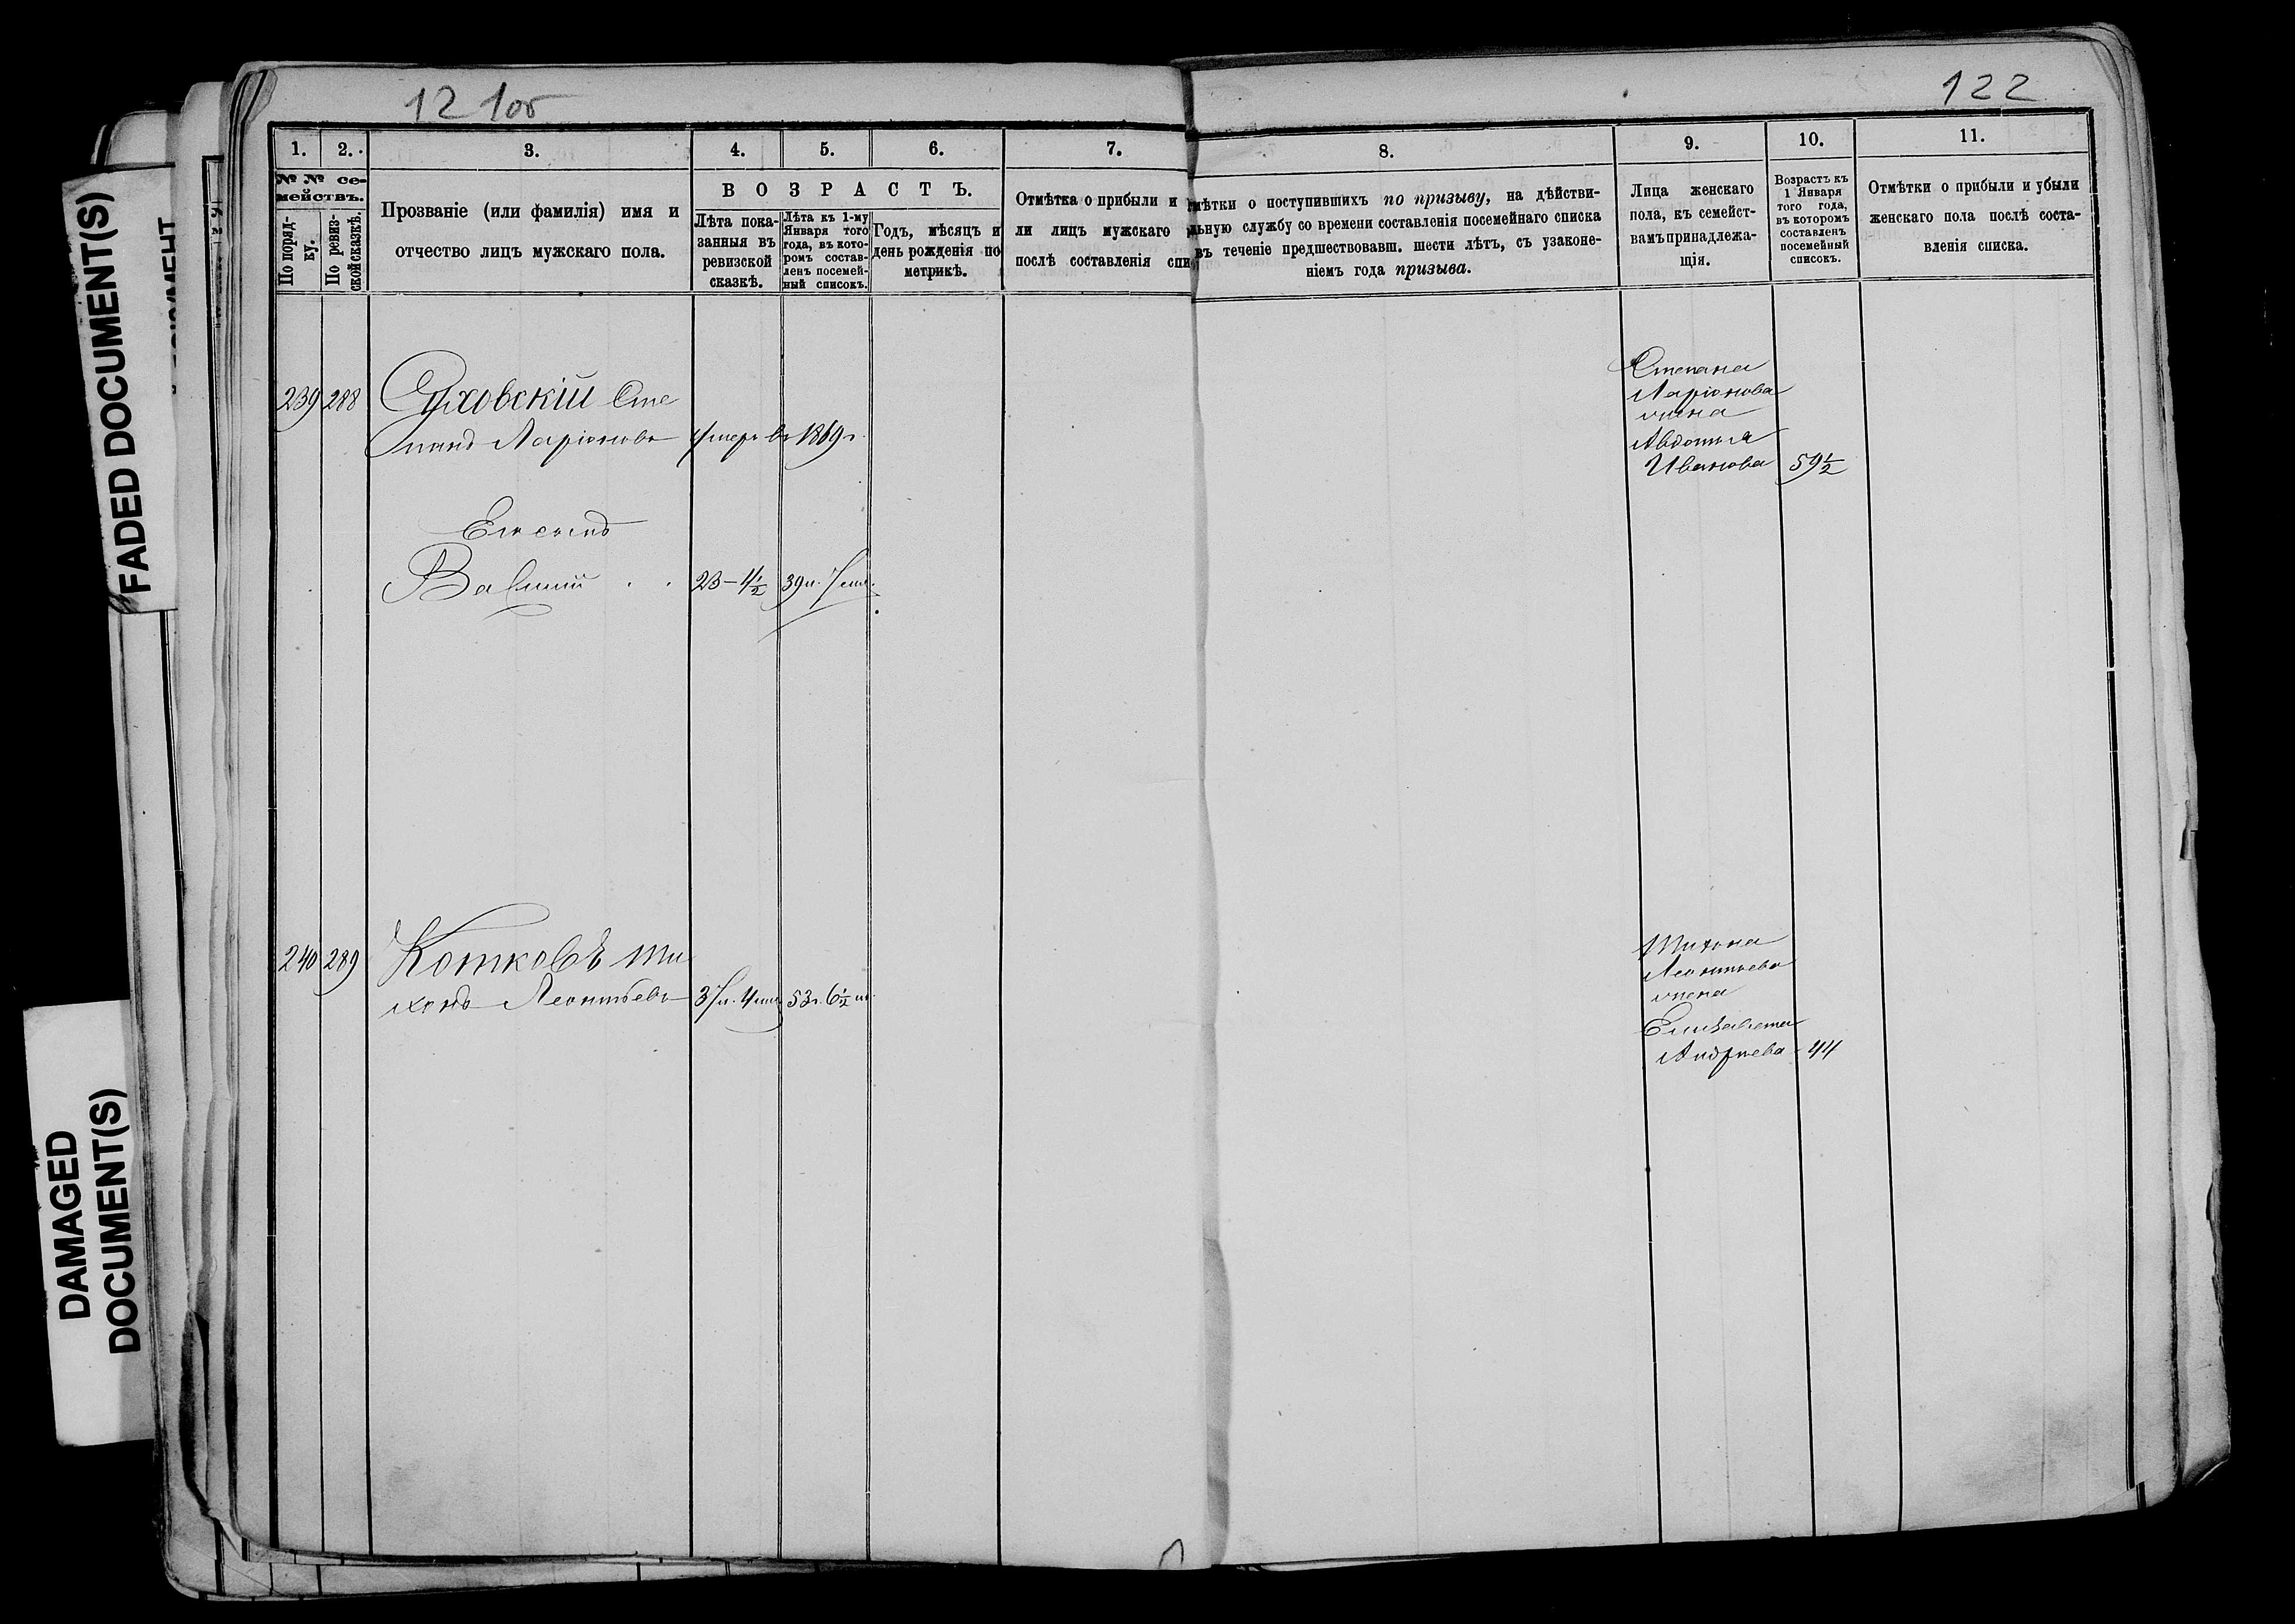 121об
122
1.
2.
3.
4.
5.
6.
7.
8.
9.
10.
11.
№ № се-
мействъ.
По поряд-
ку.
По ревиз-
ской сказкѣ.
Прозваніе (или фамилія) имя и
отчество лицъ мужскаго пола.
ВОЗРАСТЪ.
Лѣта пока-
занныя въ
ревизской
сказкѣ.
Лѣта къ 1-му
Января того
года, въ кото-
ромъ состав-
ленъ посемей-
ный списокъ.
Годъ, мѣсяцъ и
день рожденія по
метрикѣ.
Отмѣтка о прибыли и
ли лицъ мужскаго
послѣ составленія спи
мѣтки о поступившихъ по призыву, на дѣйстви-
льную службу со времени составленія посемейнаго списка
въ теченіе предшествовавш. шести лѣтъ, съ узаконе-
ніемъ года призыва.
Лица женскаго
пола, къ семейст-
вамъ принадлежа-
щія.
Возрастъ къ
1 Января
того года,
въ которомъ
составленъ
посемейный
списокъ.
Отмѣтки о прибыли и убыли
женскаго пола послѣ соста-
вленія списка.
239
288
Сте
панъ Ларіоновъ
умеръ въ 1869 г.
Степана
Ларіонова
жена
Авдотья
Иванова
59½
Его сынъ
Василий
23-4½
39
240
289
Котковъ Ти
хонъ Леонтьевъ
53 г. 6½ м.
Тихона
Леонтьева
жена
Елизавета
Андреева
44
FADED DOCUMENT(S)
DAMAGED
DOCUMENT(S)